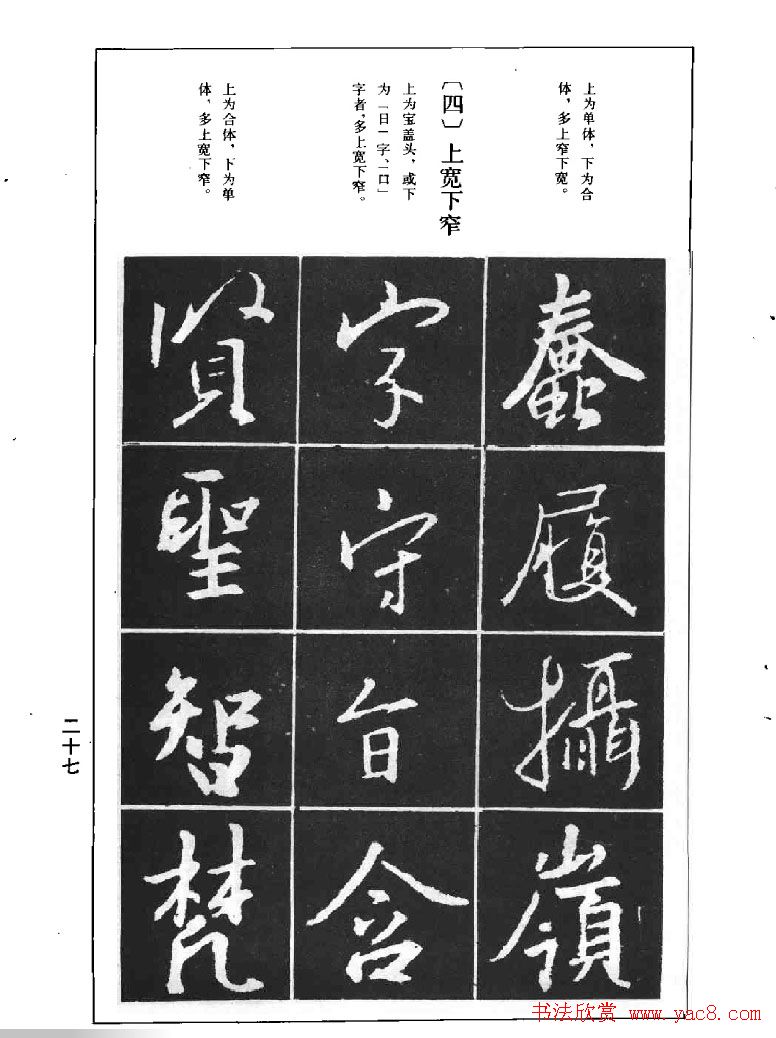 上为单体，下为合
体，多上窄下宽。
〔四〕上宽下窄
上为宝盖头，或下
为「日」字、「口」
字者，多上宽下窄。
上为合体，下为单
体，多上宽下窄。
蠢
履
攝
嶺
字
守
旨
含
賢
聖
智
梵
二十七
书法欣赏 www.yac8.com